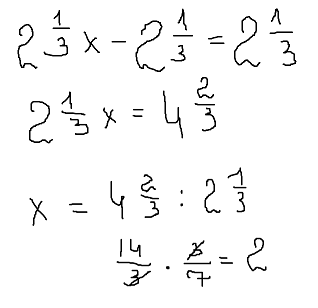 2 1/3 x - 2 1/3 = 2 1/3
2 1/3 x = 4 2/3
x = 4 2/3 : 2 1/3
14/3 · 3/7 = 2